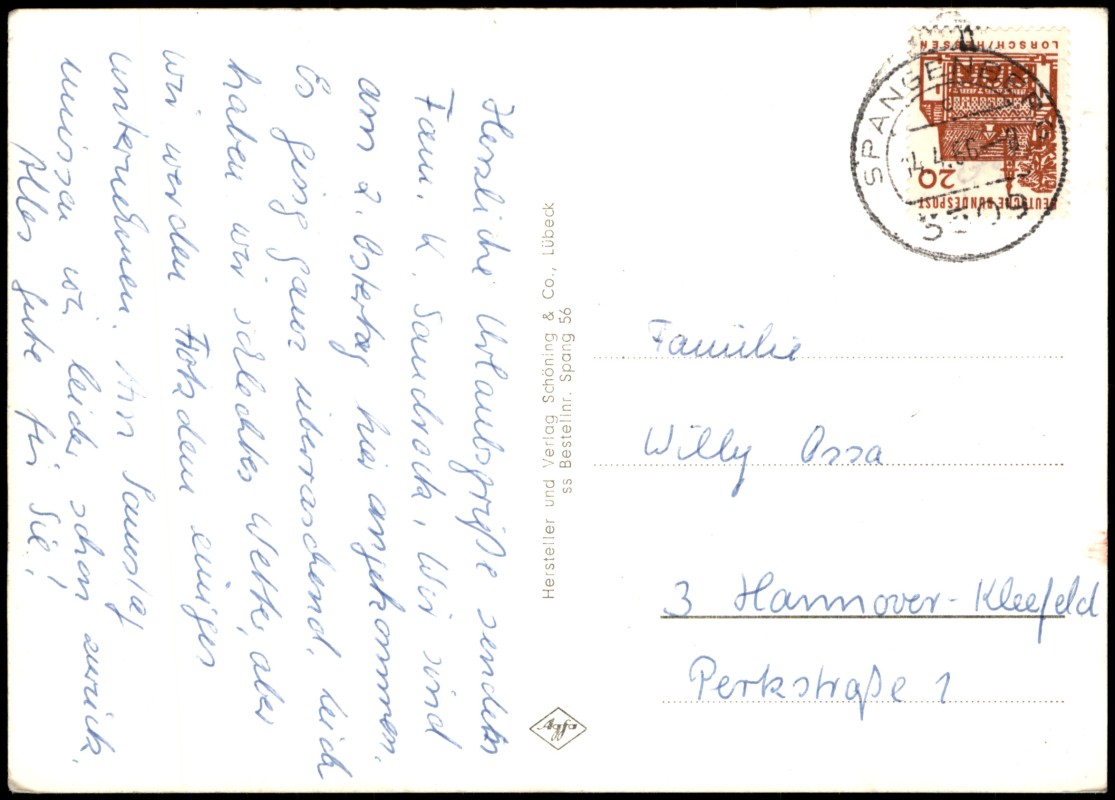 Herzliche Urlaubsgrüße sendet
Fam. K. Sandrock, Wir sind
am 2. Ostertag hier angekommen.
Es ging ganz überraschend. Leid
haben wir schlechtes Wetter, aber
wir werden trotzdem einiges
unternehmen. Am Samstag
müssen wir leider schon zurück.
Alles Gute für Sie!
Hersteller und Verlag Schöning & Co., Lübeck
ss Bestellnr. Spang 56
Agfa
LORSCH/HESSEN
20
DEUTSCHE BUNDESPOST
SPANGENBERG
14.4.66
3509
Familie
Willy Ossa
3 Hannover-Kleefeld
Perkstraße 1